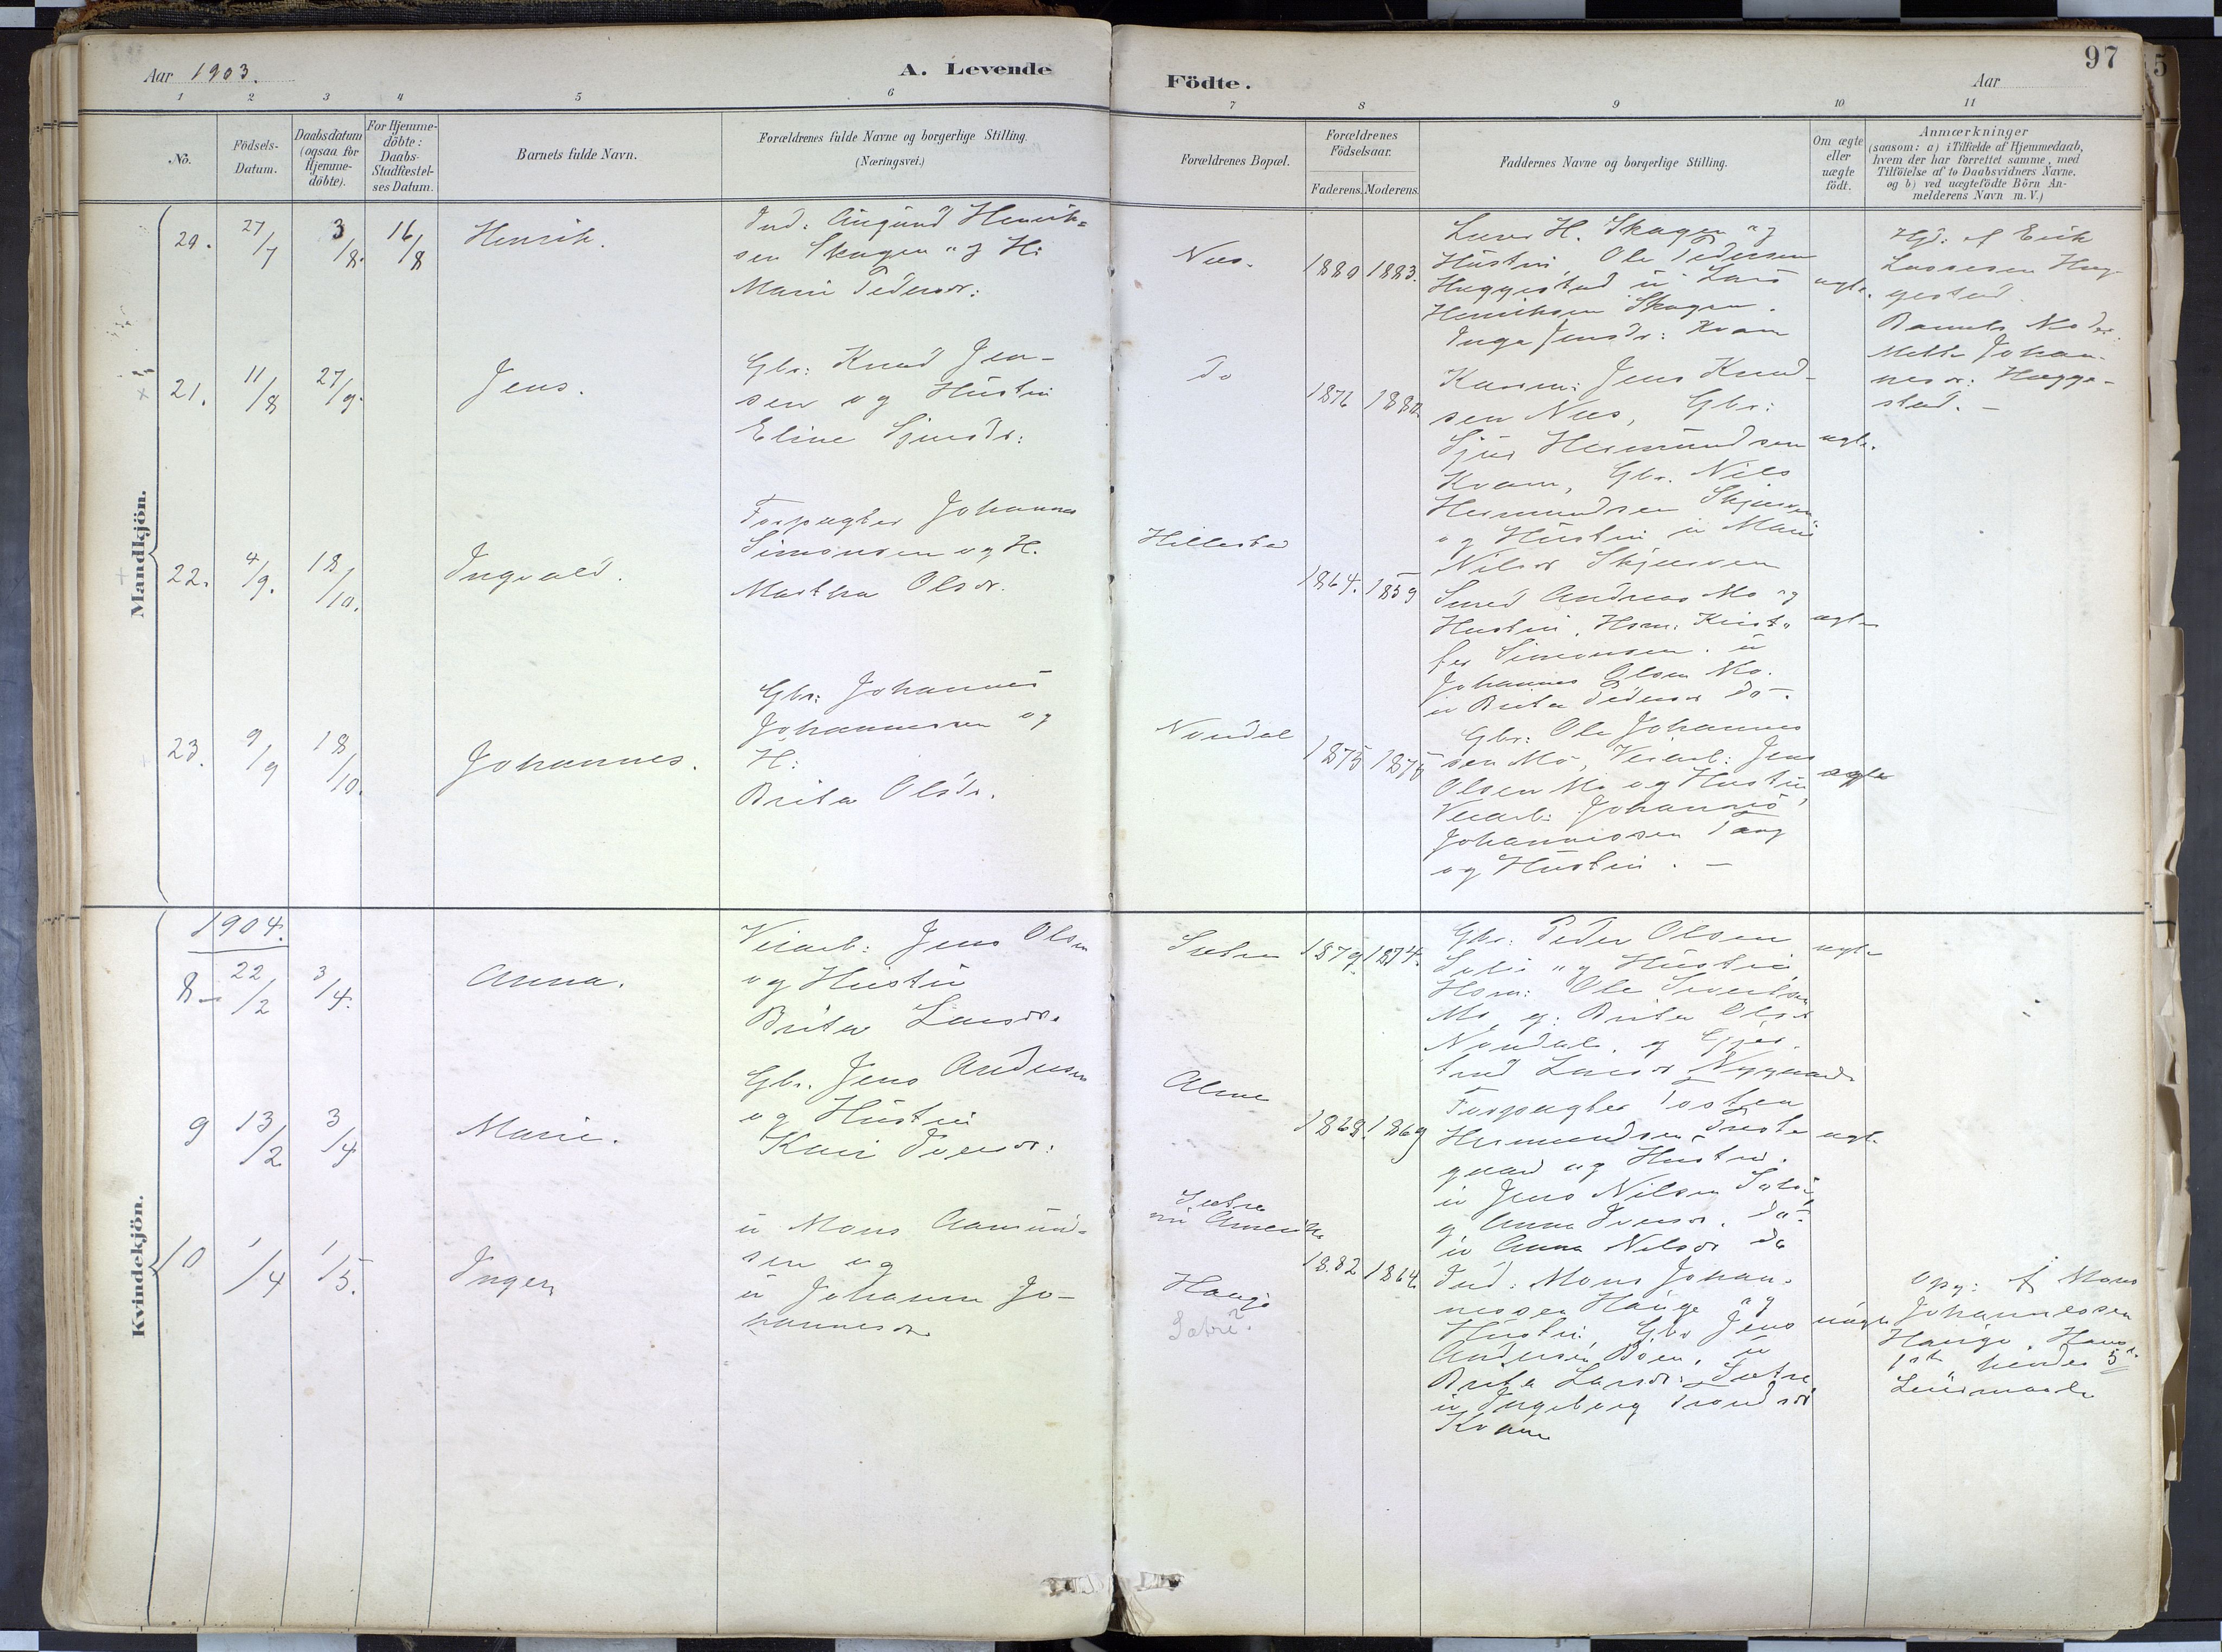 97
Aar 1903.
A. Levende Födte.
Aar
1 2 3 4 5 6 7 8 9 10 11
No.
Födsels-
Datum.
Daabsdatum
(ogsaa for
Hjemme-
döbte).
For Hjemme-
döbte:
Daabs-
Stadfæstel-
ses Datum.
Barnets fulde Navn.
Forældrenes fulde Navne og borgerlige Stilling.
(Næringsvei.)
Forældrenes Bopæl.
Forældrenes
Födselsaar.
Faderens. Moderens.
Faddernes Navne og borgerlige Stilling.
Om ægte
eller
uægte
födt.
Anmærkninger
(saasom: a) i Tilfælde af Hjemmedaab,
hvem der har forrettet samme, med
Tilföielse af to Daabsvidners Navne.
og b) ved uægtefödte Börn An-
melderens Navn m. V.)
Mandkjön.
20. 27/7 3/8. 16/8 Henrik.
Ind: Henrik-
sen Skagen og H:
Marie Pedersdr:
Nes. 1880 1883.
Lars H. Skagen og
Hustru, Ole Pedersen
Heggestad u Lars
Henriksen Skagen.
Inga Jensdr: Kvam
ægte.
Hjd: af Erik
Lassesen Hæg-
gestad.
Barnets Moder.
Mette Johan-
nesdr: Hægge-
stad. –
21. 11/8 27/9. Jens.
Gbr: Knud Jen-
sen og Hustru
Eline Sjursdr:
Do 1876 1880.
Jens Knud-
sen Nes, Gbr:
Sjur Hermundsen
Kvam, Gbr. Nils
Hermundsen Skjerven
og Hustru u Marie
Nilsdr Skjerven
ægte.
22. 4/9. 18/10. Ingvald.
Forpagter Johannes
Simonsen og H.
Martha Olsdr.
Hillestad 1864. 1859
Smed Andreas Mo og
Hustru, Hsm: Krist-
fer Simonsen. u
Johannes Olsen Mo.
u Brita Pedersdr do.
ægte
23. 9/9 18/10. Johannes.
Gbr: Johannes
Johannessen og
H:
Brita Olsdr.
Nondal 1875 1875
Gbr: Ole Johannes
sen Mo, Veiarb: Jens
Olsen Mo og Hustru,
Veiarb: Johannes
Johannessen Tang
og Hustru. –
ægte
Kvindekjön.
1904.
8 – 22/2 3/4. Anna.
Veiarb: Jens Olsen
og Hustru
Brita Larsdr.
Sætre 1879. 1874.
Gbr: Peder Olsen
og Hustru,
Hsm: Ole Sivertsen
Mo og: Brita Olsdr
Nondal. og Gjer-
trud Larsdr Nygaard
ægte
9 13/2 3/4 Marie.
Gbr. Jens Andersen
og Hustru
Kari Iversdr:
Alme 1868. 1869
Forpagter Tosten
Hermundsen Preste-
gaard og Hustru.
u Jens Nilsen
og Anna Iversdr. do.
u Anna Nilsdr do
ægte
10 1/4 1/5. Inger
u Mons Aamund-
sen og
u Johanne Jo-
hannesdr
Sætre
nu Amerika
Hauge
Sætre?
1882 1864.
Ind: Mons Johan-
nessen Hauge og
Hustru Gbr Jens
Andersen Böen, u
Brita Larsdr: Sætre
u Ingeborg Trondsdr
Kvam
uægte
Opg: af Mons
Johannessen
Hauge. Hans
1ste, hendes 5te
Leiermaal